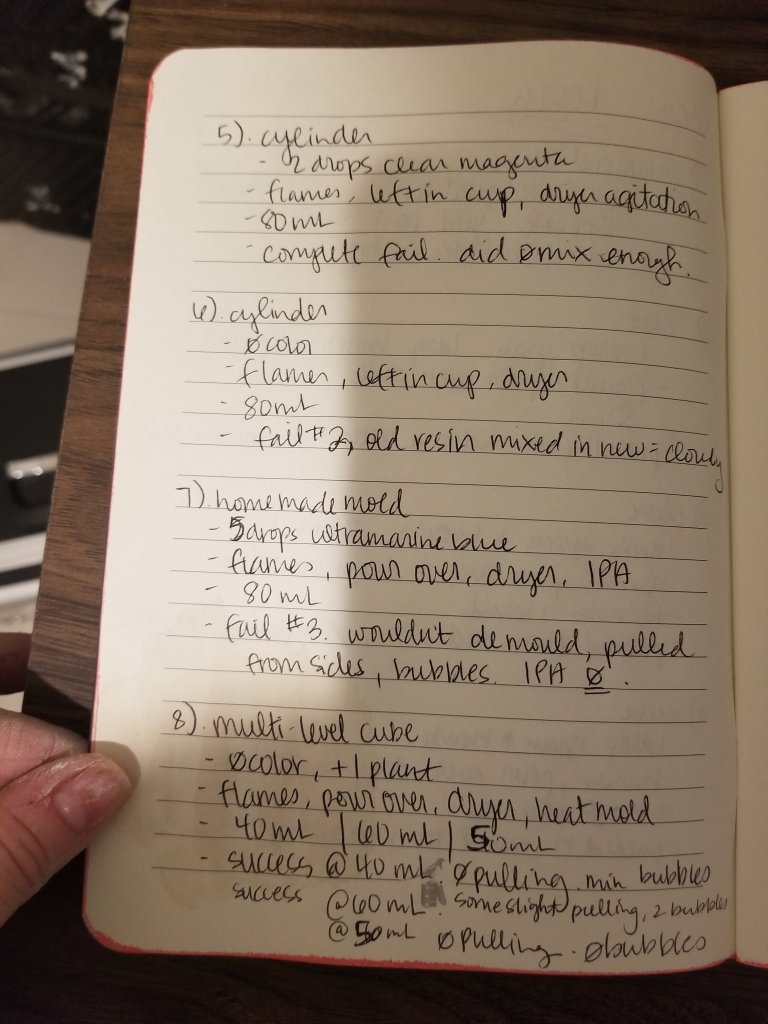 5). cylinder
- 2 drops clear magenta
- flames, left in cup, dryer agitation
- 80mL
- complete fail. did ømix enough.
6). cylinder
- øcolor
- flames, left in cup, dryer
- 80mL
- fail #2, old resin mixed in new = cloudy
7) homemade mold
- 5 drops ultramarine blue
- flames, pour over, dryer, IPA
- 80 mL
- fail #3. wouldn't demould, pulled
from sides, bubbles. IPA ø.
8). multi-level cube
- øcolor, +1 plant
- flames, pour over, dryer, heat mold
- 40mL | 60mL | 50mL
- success @ 40mL. øpulling. min bubbles
success @60mL. some slight pulling, 2 bubbles
@50mL øpulling. øbubbles